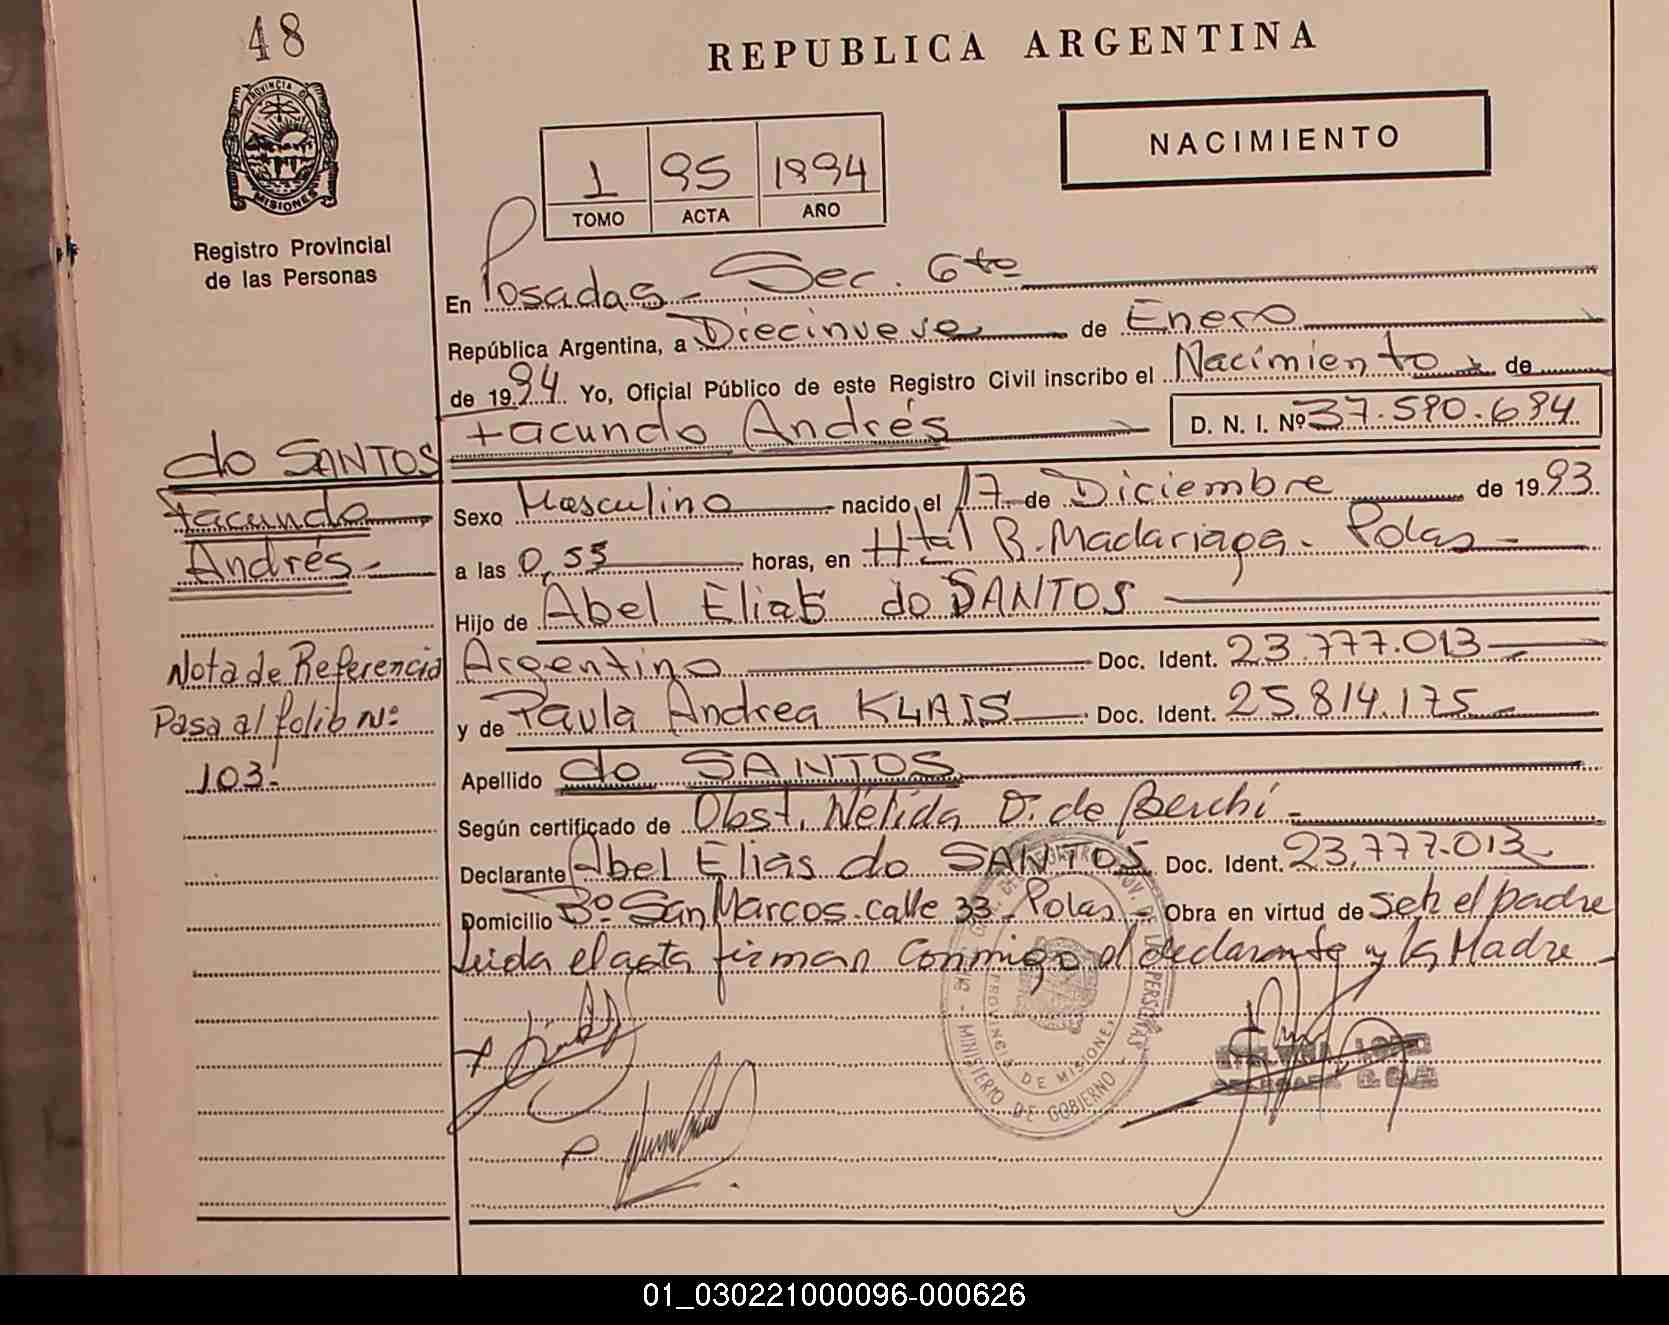 48
REPUBLICA ARGENTINA
PROVINCIA DE MISIONES
NACIMIENTO
1 95 1994
TOMO ACTA AÑO
Registro Provincial
de las Personas
En Posadas - Sec. 6to
República Argentina, a Diecinueve de Enero
de 1994 Yo, Oficial Público de este Registro Civil inscribo el Nacimiento de
Facundo Andrés D. N. I. Nº 37.590.694
do SANTOS
Facundo
Andrés -
Sexo Masculino nacido el 17 de Diciembre de 1993
a las 0,55 horas, en Htal R. Madariaga - Pdas -
Hijo de Abel Elias do SANTOS
Nota de Referencia
Pasa al folio Nº
103.-
Argentino Doc. Ident. 23.777.013
y de Paula Andrea KLAIS Doc. Ident. 25.814.175
Apellido do SANTOS
Según certificado de Obst. Nélida D. de Berchi -
Declarante Abel Elias do SANTOS Doc. Ident. 23.777.013
Domicilio Bº San Marcos calle 33 - Pdas - Obra en virtud de ser el padre
Leida el acta firman conmigo el declarante y la Madre -
MINISTERIO DE GOBIERNO
PROVINCIA DE MISIONES
01_030221000096-000626